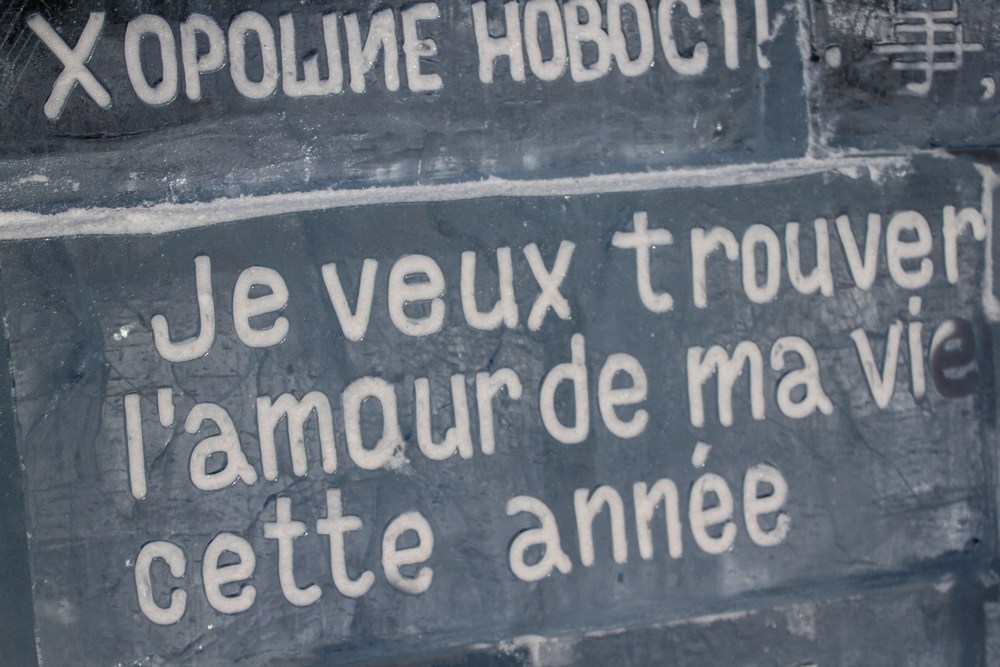 ХОРОШИЕ НОВОСТИ.
Je veux trouver
l'amour de ma vie
cette année